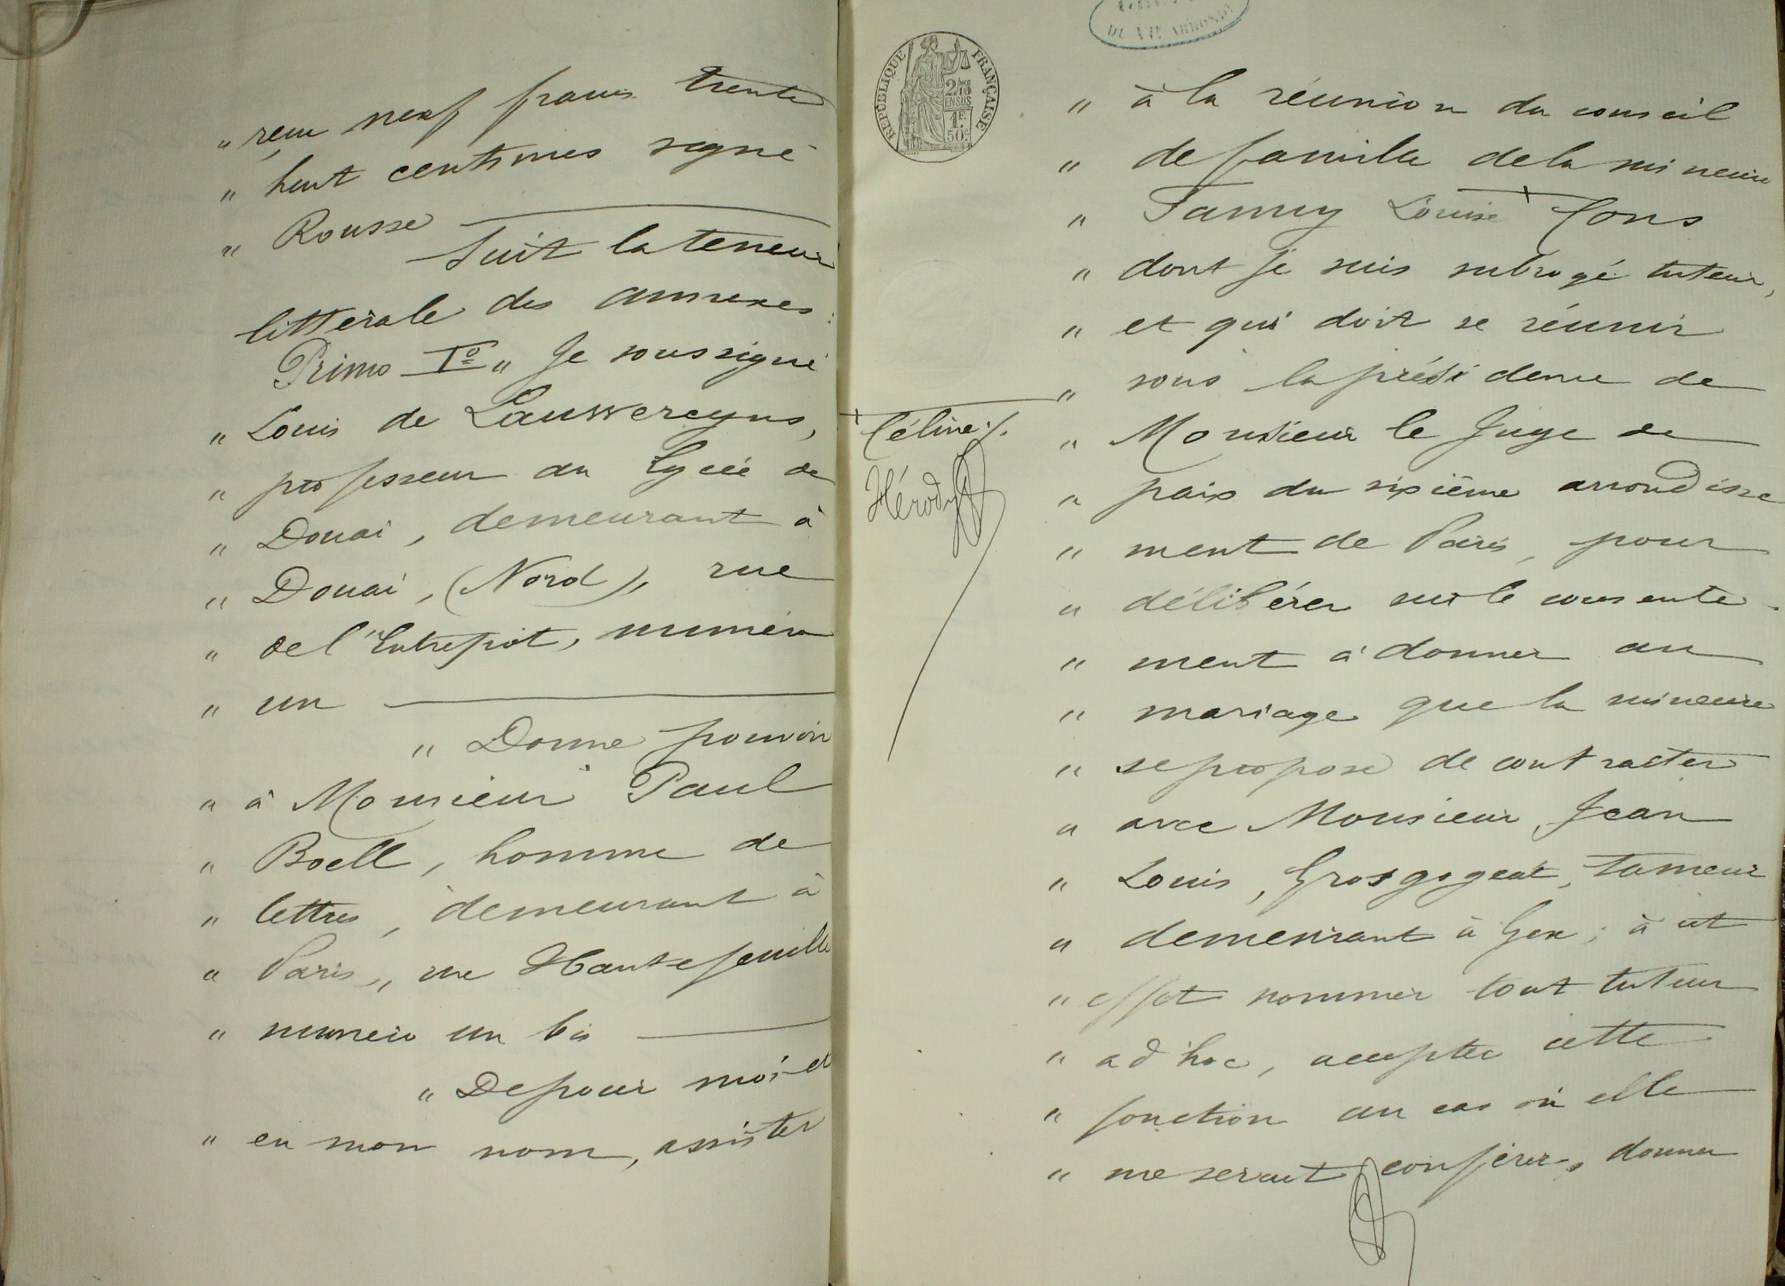 „ reçu neuf francs trente
„ huit centimes signé
„ Rousse
Suit la teneur
littérale des annexes :
Primo Io „ Je soussigné
„ Louis de Lauwereyns,
„ professeur au Lycée de
„ Douai, demeurant à
„ Douai, (Nord), rue
„ de l'Entrepôt, numéro
„ un
„ Donne pouvoir
„ à Monsieur Paul
„ Boell, homme de
„ lettres, demeurant à
„ Paris, rue Hautefeuille
„ numéro un bis
„ De pour moi et
„ en mon nom, assister
RÉPUBLIQUE FRANÇAISE
2/10
EN SUS
1F
50c
DU VIe ARRONDt
Céline ./.
Hérody
„ à la réunion du conseil
„ de famille de la mineure
„ Fanny Louise Cons
„ dont je suis subrogé tuteur,
„ et qui doit se réunir
„ sous la présidence de
„ Monsieur le Juge de
„ paix du sixième arrondisse
„ ment de Paris, pour
„ délibérer sur le consente
„ ment à donner au
„ mariage que la mineure
„ se propose de contracter
„ avec Monsieur Jean
„ Louis, Grosgogeat, tanneur
„ demeurant à Gex ; à cet
„ effet nommer tout tuteur
„ ad hoc, accepter cette
„ fonction au cas où elle
„ me serait conférée, donner